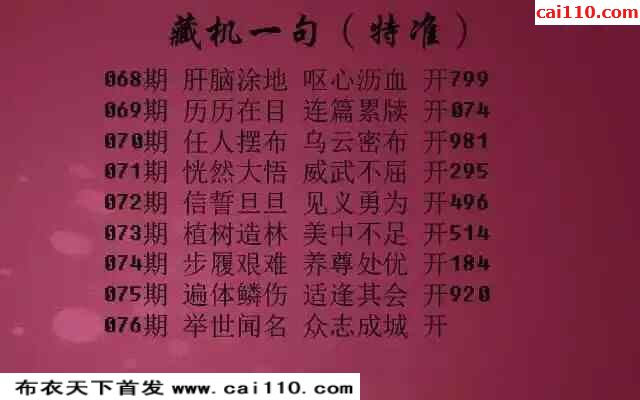 cai110.com
藏机一句（特准）
068期 肝脑涂地 呕心沥血 开799
069期 历历在目 连篇累牍 开074
070期 任人摆布 乌云密布 开981
071期 恍然大悟 威武不屈 开295
072期 信誓旦旦 见义勇为 开496
073期 植树造林 美中不足 开514
074期 步履艰难 养尊处优 开184
075期 遍体鳞伤 适逢其会 开920
076期 举世闻名 众志成城 开
布衣天下首发 www.cai110.com